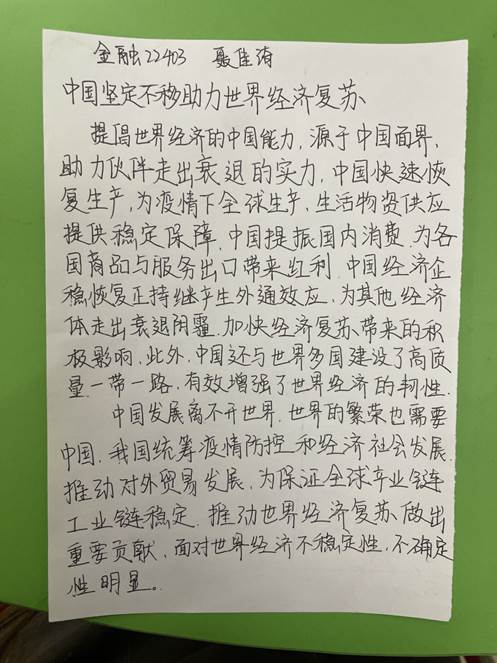 金融22403 聂佳涛
中国坚定不移助力世界经济复苏、
提倡世界经济的中国能力,源于中国面界、
助力伙伴走出衰退的实力,中国快速恢
复生产,为疫情下全球生产、生活物资供应
提供稳定保障.中国提振国内消费.为各
国商品与服务出口带来红利.中国经济企
稳恢复正持继产生外通效应,为其他经济
体走出衰退阴霾.加快经济复苏、带来的积
极影响,此外,中国还与世界多国建设了高质
量一带一路,有效增强了世界经济的韧性.
中国发展离不开世界.世界的繁荣也需要
中国.我国统筹疫情防控和经济社会发展.
推动对外贸易发展.为保证全球产业链
工业链稳定.推动世界经济复苏、做出
重要贡献,面对世界经济不稳定性,不确定
性明显。